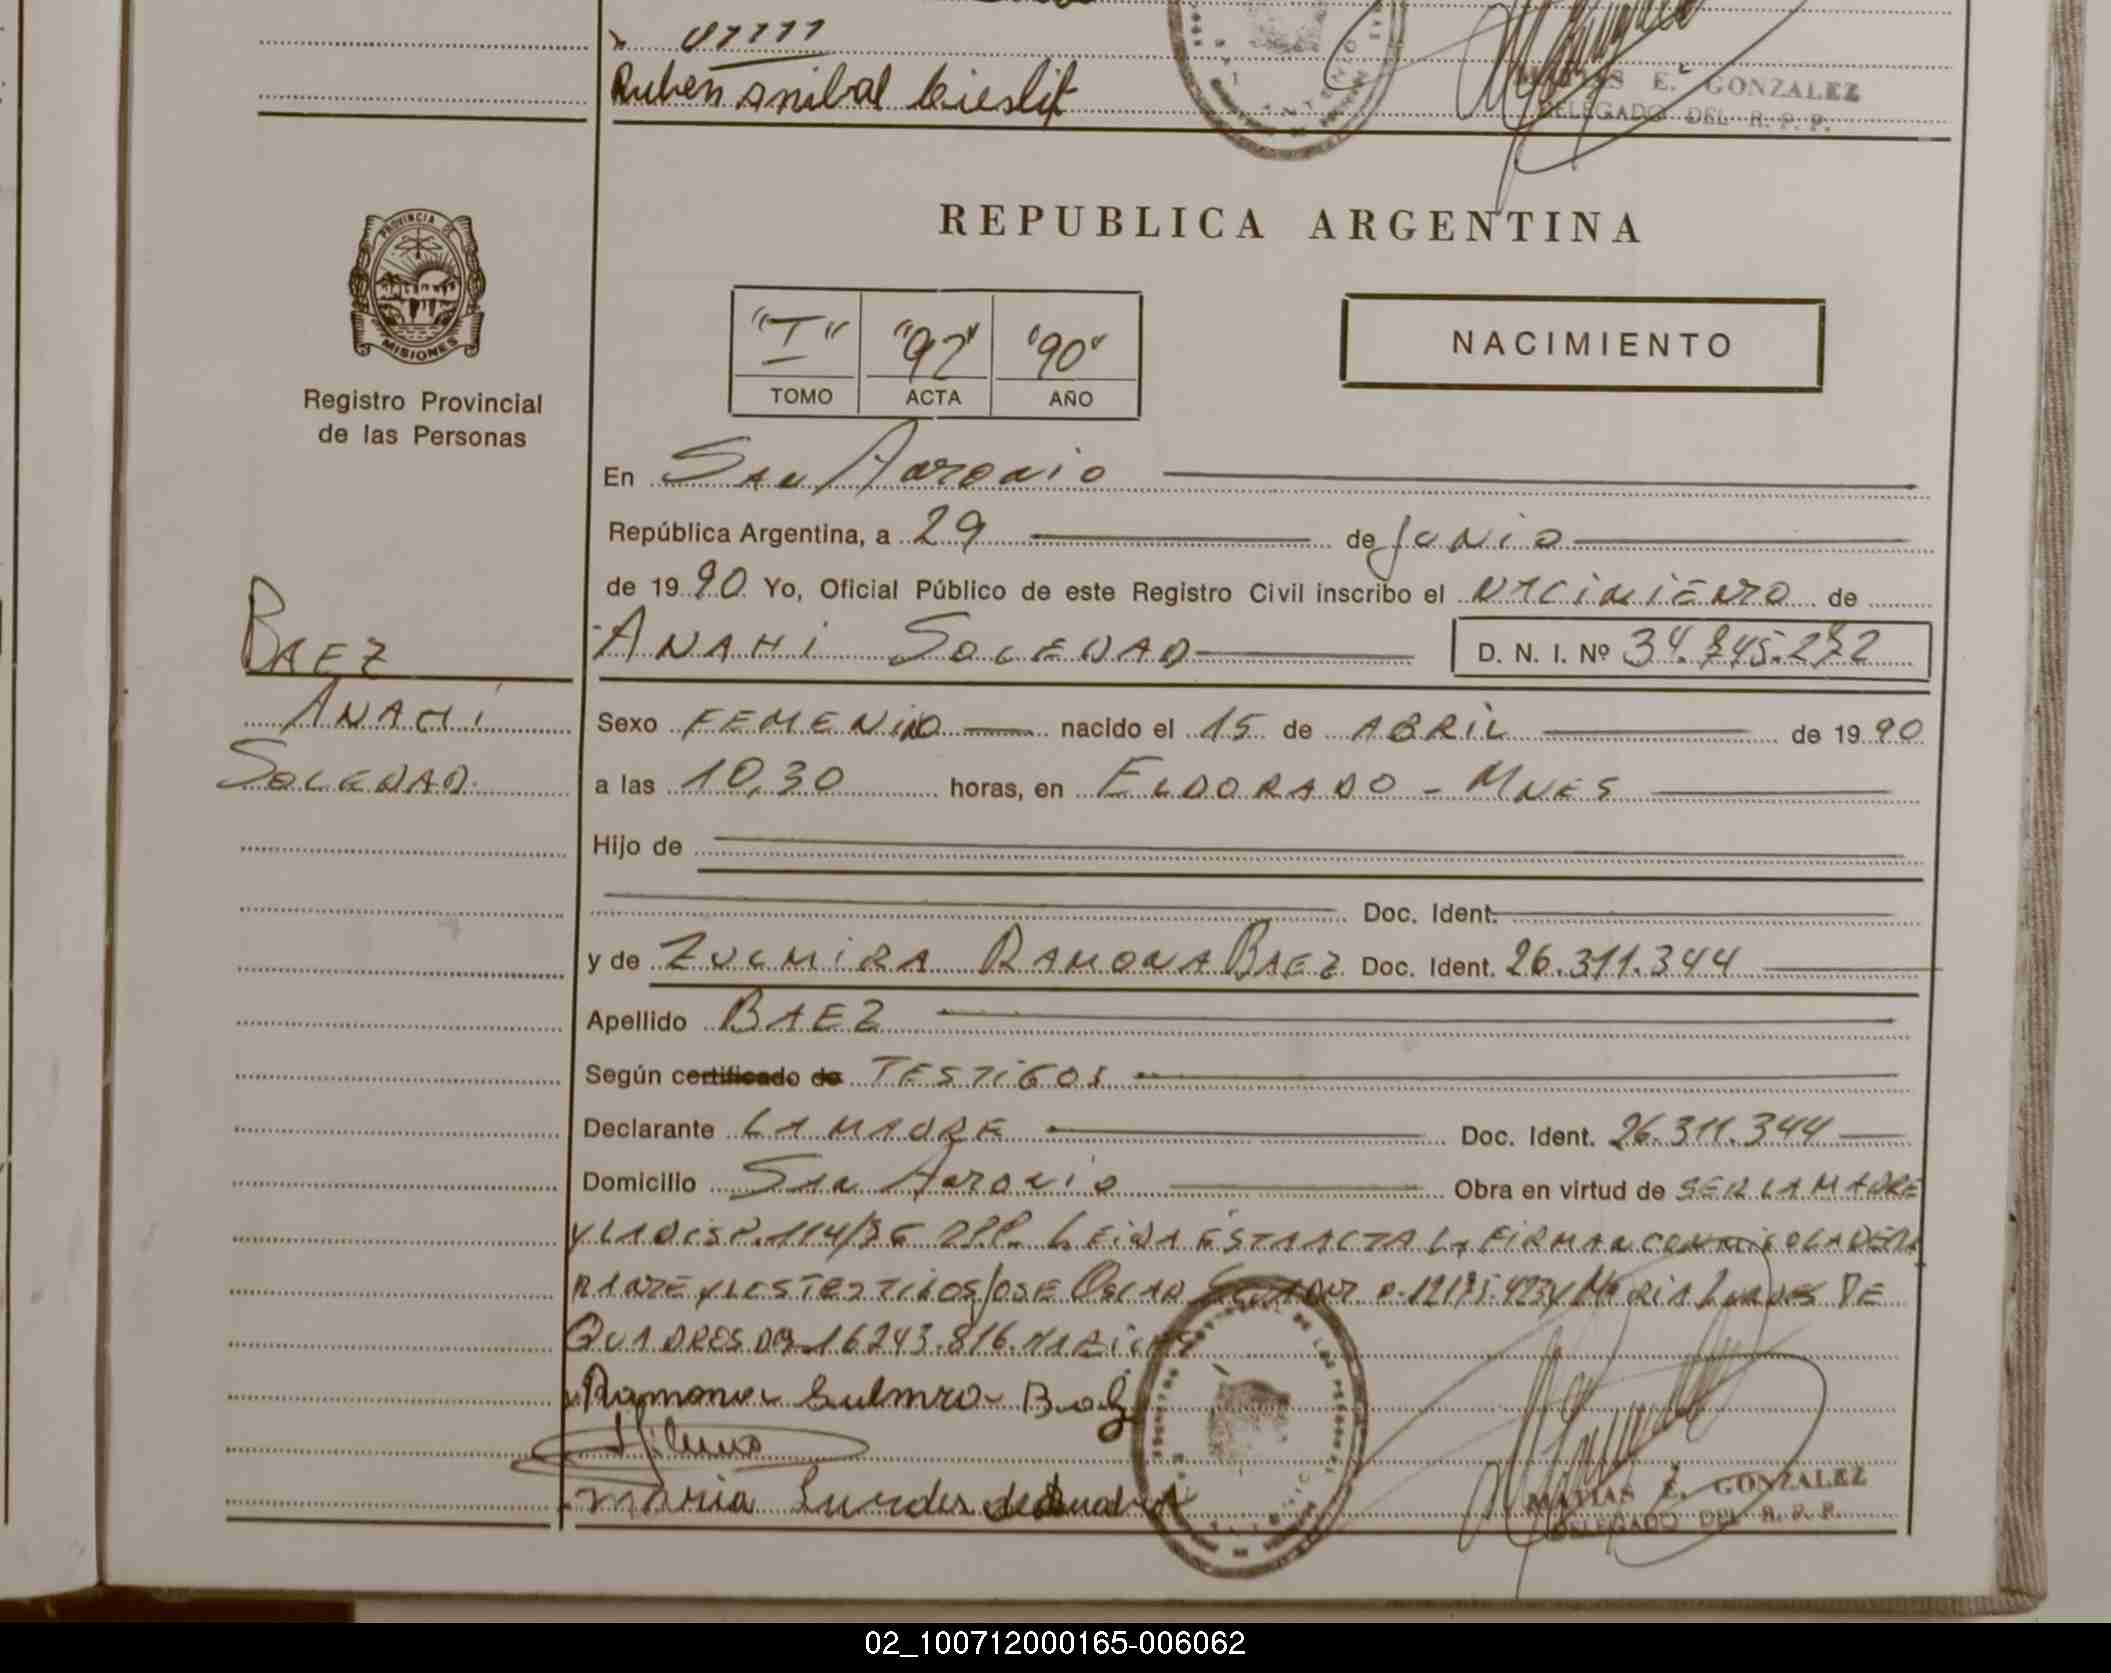 Ruben anibal
MATIAS E. GONZALEZ
DELEGADO DEL R. P. P.
REPUBLICA ARGENTINA
PROVINCIA DE
MISIONES
Registro Provincial
de las Personas
"I" "92" "90"
TOMO ACTA AÑO
NACIMIENTO
En San Antonio
República Argentina, a 29 de Junio
de 1990 Yo, Oficial Público de este Registro Civil inscribo el NACIMIENTO de
ANAHI SOLEDAD D. N. I. Nº
BAEZ
ANAHÍ
SOLEDAD
Sexo FEMENINO nacido el 15 de ABRIL de 1990
a las 10,30 horas, en ELDORADO - MNES
Hijo de
Doc. Ident.
y de ZULMIRA RAMONA BAEZ Doc. Ident. 26.311.344
Apellido BAEZ
Según certificado de TESTIGOS
Declarante LA MADRE Doc. Ident. 26.311.344
Domicilio San Antonio Obra en virtud de SER LA MADRE
Y LA DISP. LEIDA ESTA ACTA LA FIRMAN CONMIGO LA DECLA
RANTE Y LOS TESTIGOS JOSE OSCAR Y MARIA LURDES DE
QUADROS 16243.816
Ramona Sulmira
Maria Lurdes de
MATIAS E. GONZALEZ
DELEGADO DEL R. P. P.
02_100712000165-006062